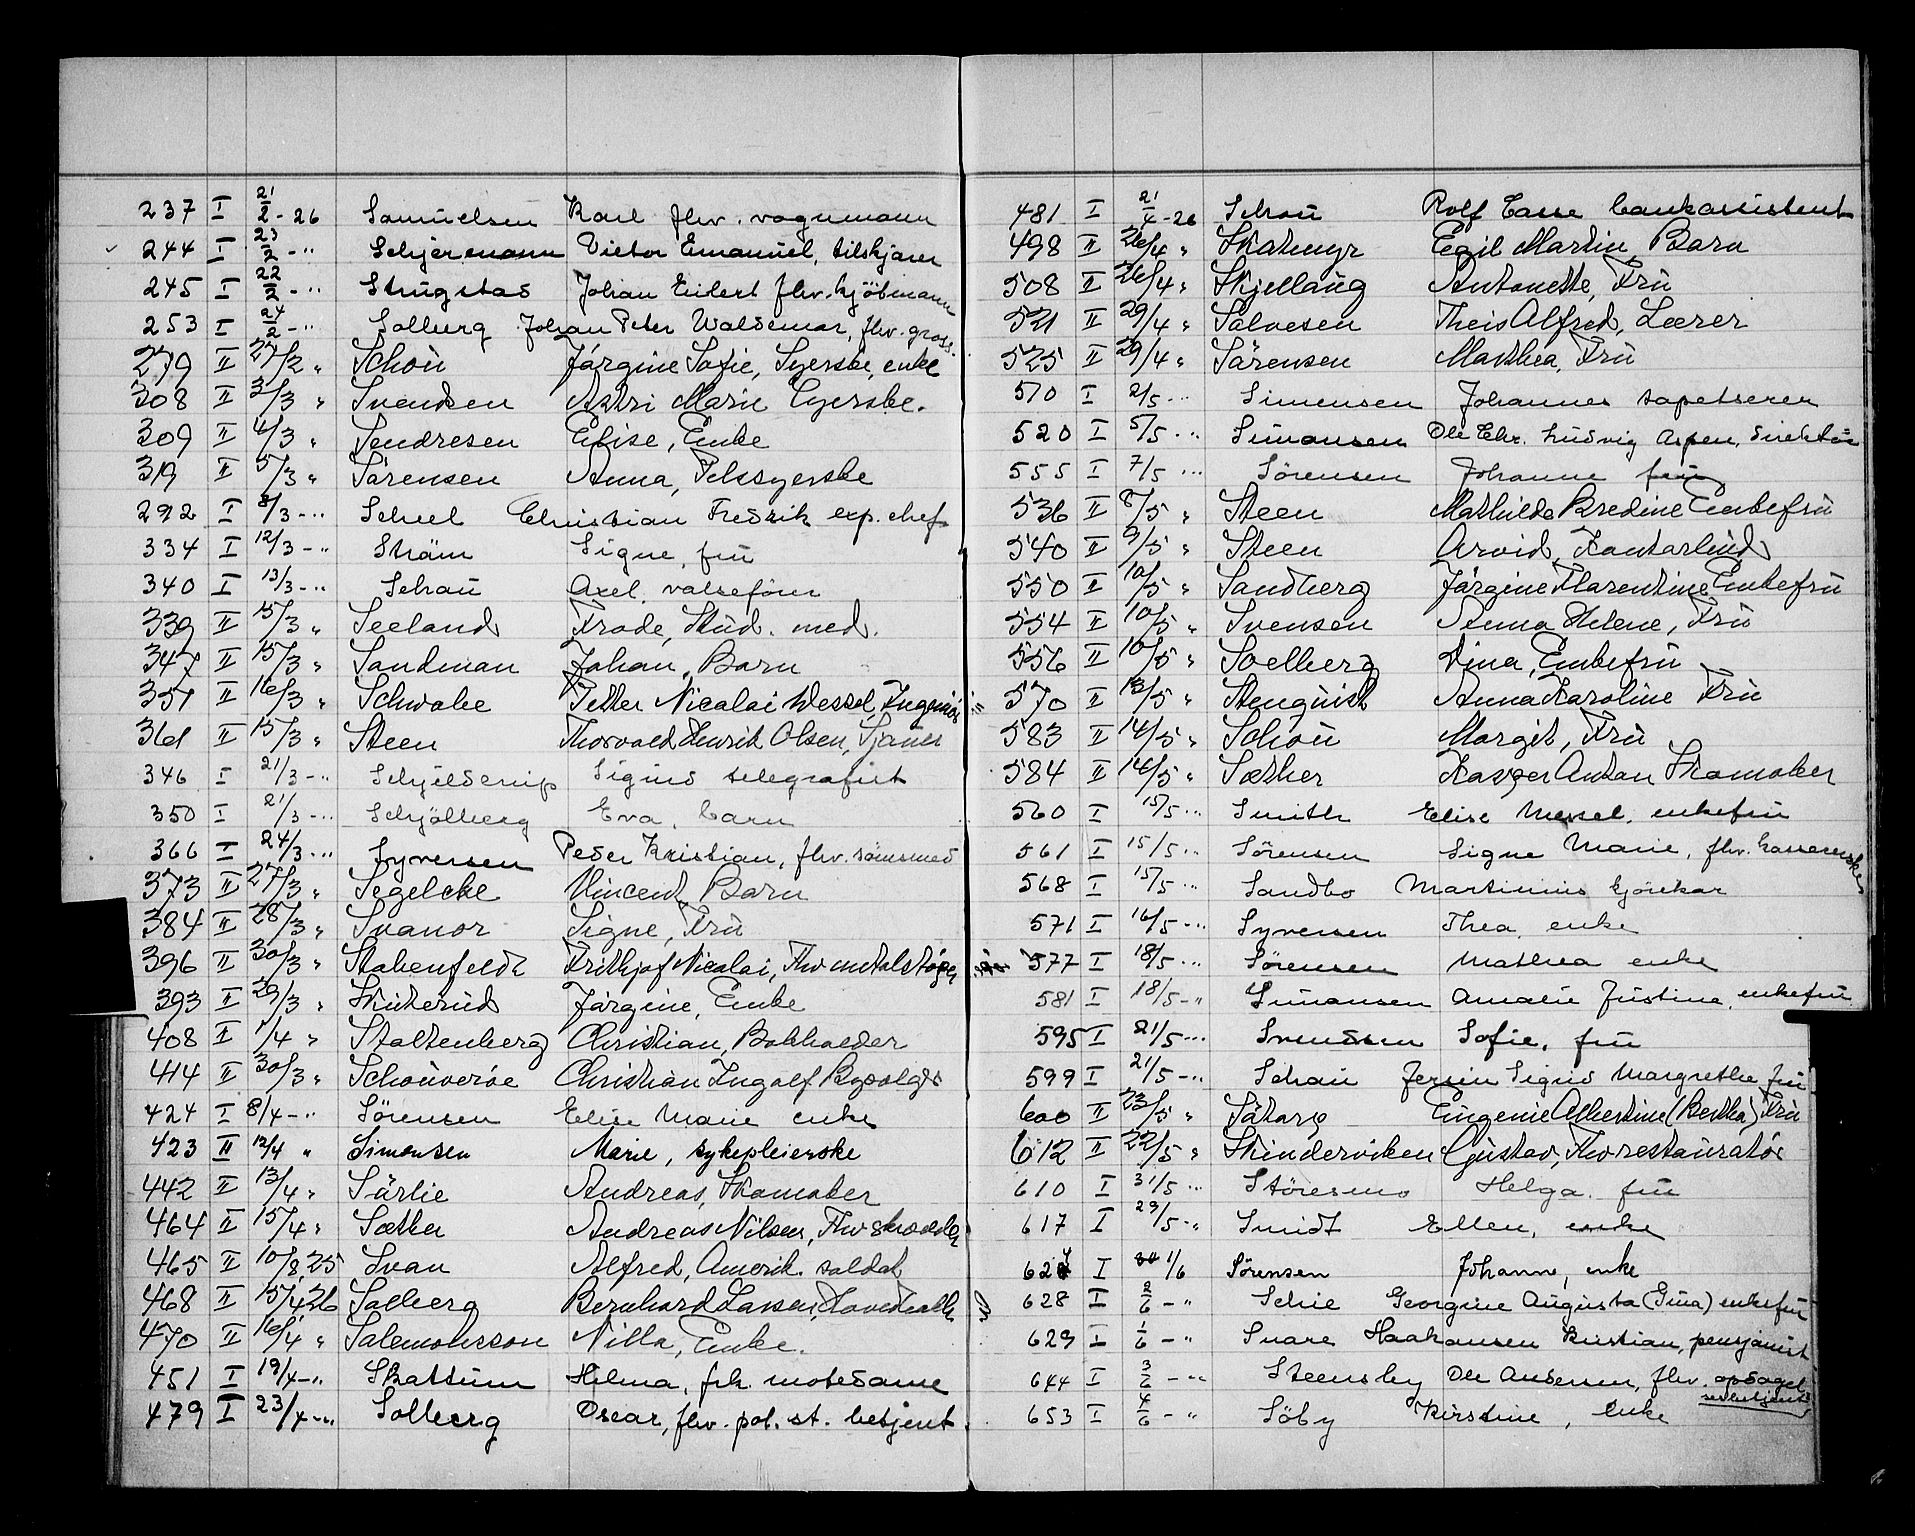 237 I 21/2-26 Samuelsen Karl fhv. vognmann
244 I 23/2-" Schjermann Victor Emanuel, tilskjærer
245 I 22/2-" Skugstad Johan Eilert fhv. kjöbmann
253 I 24/2-" Solberg Johan Peter Waldemar, fhv. gross.
279 II 27/2 " Schou Jørgine Sofie, Syerske, enke
308 II 2/3 " Svendsen Astri Marie Syerske.
309 II 4/3 " Sendresen Elise, Enke
319 II 5/3 " Sørensen Anna, Pelssyerske
292 I 8/3-" Scheel Christian Fredrik exp. chef
334 I 12/3-" Strøm Signe, fru
340 I 13/3-" Schau Axel, valsefører
339 II 15/3 " Seeland Frode, Stud. med.
347 II 15/3 " Sandman Johan, Barn
351 II 16/3 " Schwabe Petter Nicolai Wessel, Ingeniør
361 II 15/3 " Steen Thorvald Henrik Olsen, Tjener
346 I 21/3-" Schjelderup Sigurd telegrafist
350 I 21/3-" Schjölberg Eva, barn
366 I 24/3-" Syversen Peder Kristian, fhv. sømsmed
373 II 27/3 " Segelcke Vincent, Barn
384 II 28/3 " Svanor Signe, Fru
396 II 30/3 " Stabenfeldt Frithjof Nicolai, Fhv metalstøper
393 II 29/3 " Skuterud Jørgine, Enke
408 II 1/4 " Stoltenberg Christian, Bokholder
414 II 30/3 " Schouveröe Christian Ingolf Byselger
424 I 8/4-" Sørensen Elise Marie enke
423 II 12/4 " Simonsen Marie, sykepleierske
442 II 13/4 " Sürlie Andreas, Skomaker
464 II 15/4 " Sæther Andreas Nilsen, Fhv skrædder
465 II 10/8 25 Svan Alfred, Amerik. soldat
468 II 15/4 26 Solberg Bernhard Larsen,
470 II 16/4 " Salomonsson Nilla, Enke.
451 I 19/4-" Skattum Helma, frk. motedame
479 I 23/4-" Solberg Oscar, fhv. pol. st. betjent.
481 I 21/4-26 Schou Rolf Tasse bankassistent
498 II 26/4 " Skatmyr Egil Martin Barn
508 II 26/4 " Skjellaug Antonette, Fru
521 II 29/4 " Salvesen Theis Alfred, Lærer
525 II 29/4 " Sørensen Marthea, Fru
510 I 2/5-" Simensen Johannes tapetserer
520 I 5/5-" Simonsen Ole Chr. Ludvig Aspen, direktør
555 I 7/5-" Sørensen Johanne fru
536 II 8/5 " Steen Mathilde Bredine Enkefru
540 II 9/5 " Steen Arvid, Kontorbud
550 II 10/5 " Sandberg Jørgine Florentine Enkefru
554 II 10/5 " Svensen Anna Helene, Fru
556 II 10/5 " Soelberg Dina, Enkefru
570 II 13/5 " Stenquist Anna Karoline Fru
583 II 14/5 " Schou Margit, Fru
584 II 14/5 " Sæther Kasper Anton Skomaker
560 I 15/5-" Smith Elise Messel, enkefru
561 I 15/5-" Sørensen Signe Marie, fhv. kassererske
568 I 15/5-" Sandbo Martinius kjørekar
571 I 16/5-" Syversen Thea, enke
577 I 18/5-" Sørensen Mathea enke
581 I 18/5-" Simonsen Amalie Justine, enkefru
595 I 21/5-" Svendsen Sofie, fru
599 I 21/5-" Schau Sigrid Margrethe fru
600 II 23/5 " Eugenie Albertine (Bertha) Fru
612 II 22/5 " Skinderviken Gustav, Fhv restauratør
610 I 31/5-" Helga, fru
617 I 29/5-" Smidt Ellen, enke
624 I 1/6 Sørensen Johanne, enke
628 I 2/6-" Schie Georgine Augusta (Gina) enkefru
629 I 1/6-" Svare Haakonsen Kristian, pensjonist
644 I 3/6-" Steensby Ole Andersen, fhv. opdaget
653 I 4/6-" Söby Kirstine, enke